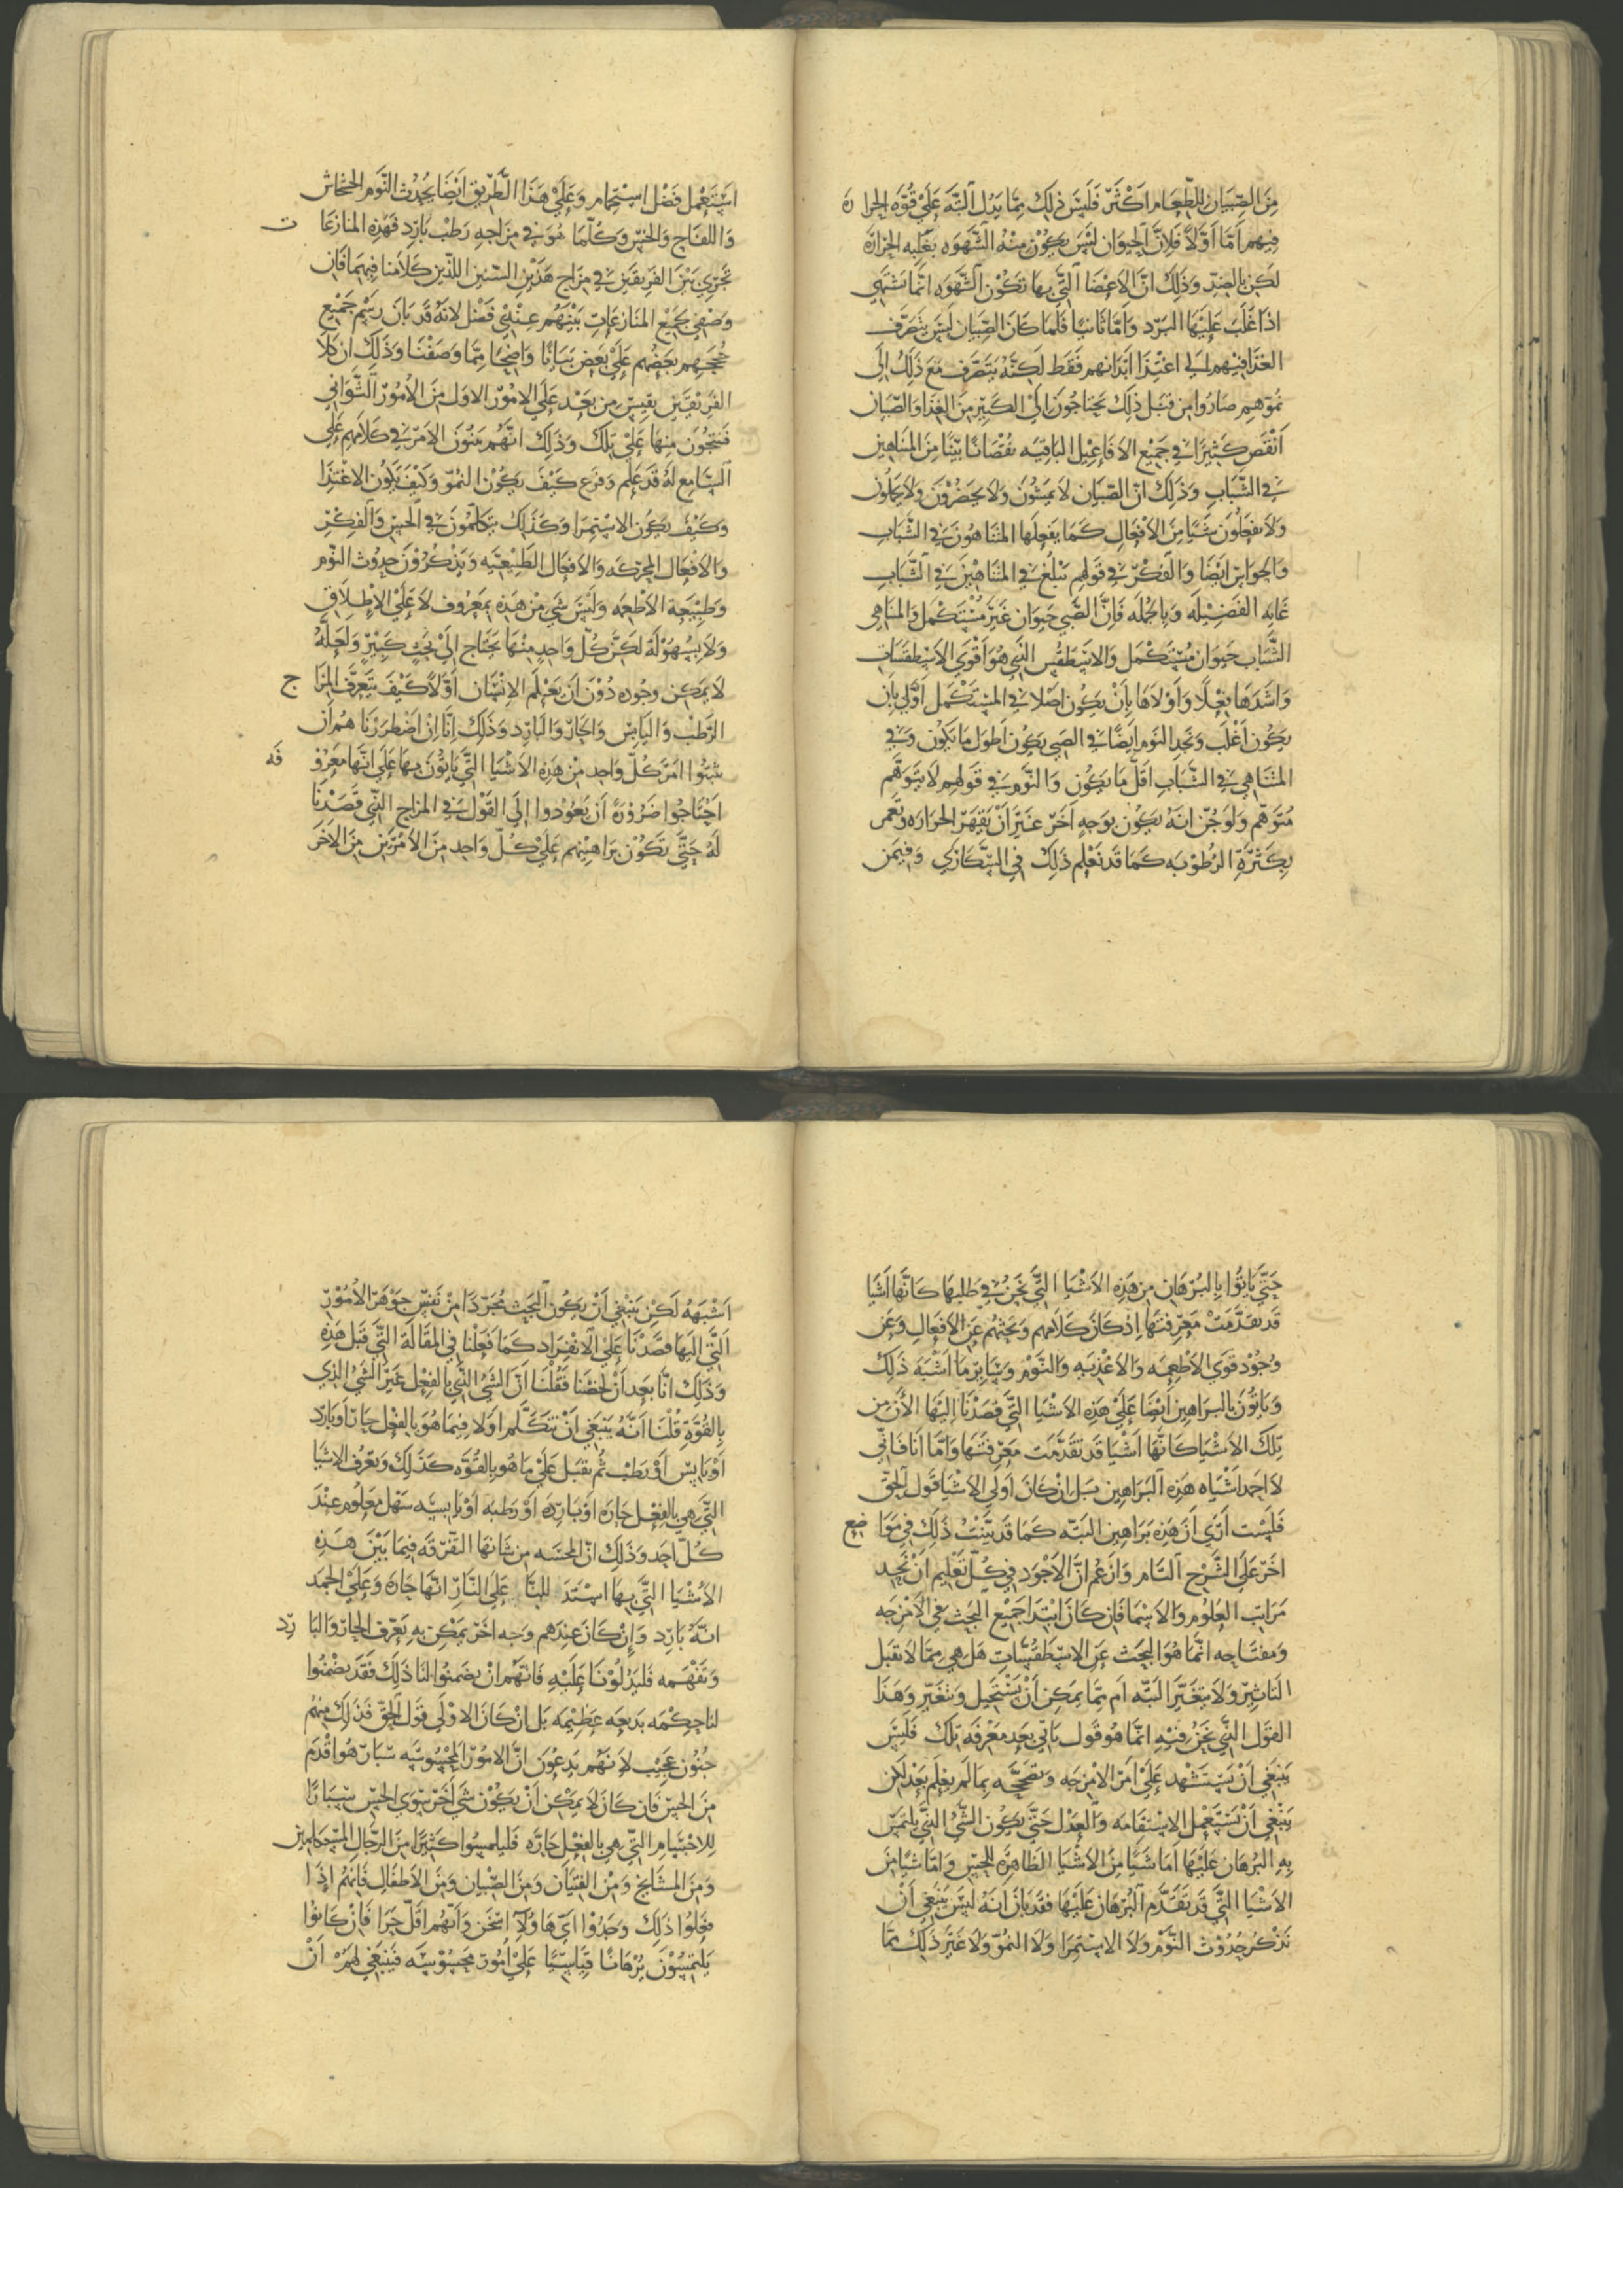 مِنَ الصِّبيَانِ للطَّعَامِ اَكْثَرَ فَلَيسَ ذلِكَ مِمَّا يَدُل البَتَّه عَلَيْ قُوَّه الحرا رة
فيهم اَمَّا اَوَّلاً فَلِانَّ الحيوَان لَيْسَ يكُوْنُ مِنْهُ الشَّهوَه بغَلبه الحَرارَه
لكن بالضِدِّ وَذَلِكَ انَّ الاعْضَا الَّتي بها تكوْن الشَّهوَه انَّما تشتهي
اذا غَلَبَ عَلَيْهَا البَرْد وَامَّا ثانيًا فَلمَا كانَ الصِّبيَان ليسَ يَنصَرف
الغذا فيهم لي اغتِذَا ابْدَانهم فَقَط لكنَّهُ يَتَصَرَّف مَعَ ذَلِكَ اِلَي
نُموّهِم صَارُوا مِن قبَل ذلِكَ يَحتاجُونَ اِلَيْ الكَثِيْر مِنَ الغِذَا وَالصِّبَيان
اَنْقَص كَثِيْرًا فِي جَمِيْع الافَاعِيْل البَاقيَه نقْصَانًا بَيّنًا مِنَ المتَنَاهِينَ
في الشَّبَابِ وَذَلِكَ انّ الصّبْيَان لا يَمشُونَ وَلا يَحضُرُوْنَ وَلا يحملُون
وَلا يَفعَلُونَ شيًا مِنَ الاَفْعَالِ كَمَا يَفعَلهَا المتنَاهُونَ في الشَّبَابِ
وَالحَوَاسّ اَيْضًا وَالفِكْر في قَولهِم تبْلُغ في المتنَاهِينَ في الشَّبَابِ
غَايَه الفَضِيْلَه وَبِالجُملَه فَاِنَّ الصَّبي حيوَان غَيْر مُسْتَكْمل وَالمتنَاهي
الشَّبَاب حيوَان مُسْتَكْمَل وَالاسطَقْس الَّذي هُوَ اَقْوَي الاسْطقسَات
وَاشَدّهَا فِعلًا وَاَوْلَاهَا بِاَنْ يَكُون اصْلا في المسْتكْمل اَوْلي بان
يَكُون اَغْلَب وَنجدُ النَّوم اَيضًا في الصَّبي يكون اَطوَل مَا يَكُون وَفي
المتنَاهي في الشَّبَاب اقلّ مَا يكُون وَالنَّوم في قَولهم لا يَتَوهَّم
مُتَوَهِّم وَلو جُنَّ انَّهُ يكُون بوَجهٍ اَخَر غَيْر اَنْ يَقهَر الحَرَارَه وَتغمر
بِكَثْرَةِ الرُّطُوْبَه كَمَا قَد نَعْلم ذَلِكَ في السّكَارَي وَفيمَن
اسْتَعْمَلَ فَضْل اسْتحْمَام وَعَلَيْ هَذَا الطَّرِيق اَيْضًا يحُدث النَّوم الخشخاش
وَاللفَّاح وَالخَسّ وَكُلّمَا هُوَ في مزَاجِهِ رَطْب بَارِد فهَذِه المنَازعَا ت
تَجرِي بَيْنَ الفَرِيقَين في مزَاج هَذَيْن السّنين اللّذين كَلاَمنا فيهمَا فَان
وَصْفِي لجَمِيعْ المنَازعَاتِ بَيْنَهُم عِنْدي فَضْل لانَّهُ قَد بَان رَسْم جَمِيْع
حُجَجِهِم بَعضُهم عَلَيْ بَعْض بَيَانًا وَاضِحًا مِمَّا وَصَفْنَا وَذَلِكَ ان كلاَ
الفَرِيقَيْن يَقيس مِن بَعْد عَلَي الاُموْر الاوَل مِنَ الاُمُوْر الثَّوَاني
فَينتجُون مِنهَا عَلَيْ تِلْكَ وَذَلِكَ انَّهُم يَبنُونَ الاَمْر في كَلاَمهم عَلَي
السَّامِع لهُ قَد علِم وَفَرَغ كَيْفَ يكُوْن النمُوّ وَكَيْفَ يَكُون الاغْتِذَا
وَكَيْفَ يَكُون الاسْتمرَا وَكَذلِكَ يَتَكلَّمُونَ في الحسِّ وَالفِكْر
وَالاَفْعَال المحرّكه وَالاَفْعَال الطَّبِيْعيَّه وَيَذكُرُوْنَ حدُوْث النَّوم
وَطَبِيْعَة الاَطْعِمَه وَلَيْسَ شي مِنْ هَذِهِ بمَعرُوف لا عَلَيْ الاِطْلاَق
وَلا بسُهُوْلَة لكِن كُلّ وَاحِدٍ مِنْهَا يَحتَاج اِلَيْ بَحثٍ كَبِيْرٍ وَلَعَلَّهُ
لا يمْكِن وجُوده دُوْنَ اَن يَعْلَم الاِنْسَان اَوَّلًا كَيْفَ يَتعَرَّف المزَا ج
الرَّطْب وَاليَابِس وَالحَارّ وَالبَارِد وَذَلِكَ انَّا اِن اضْطَررْنَا هُم اَن
يثبِتُوا امْرَ كُلّ وَاحِد مِنْ هَذِهِ الاَشْيَا الَّتي يَاتُوْنَ بهَا عَلَي انَّهَا مَعرُوْ فَه
اِحْتَاجُوا ضَرُوْرَةً اَن يَعُوْدوا اِلَي القَوْل في المزَاج الَّذي قَصَدْنَا
لَهُ حَتَّي تَكُوْن بَرَاهينهم عَلَيْ كُلّ وَاحِد مِنَ الاَمْرَيْن مِنَ الاخَر
حَتَّي يَاتُوا بِالبُرْهَان مِن هَذِهِ الاَشْيَا الَّتي نَحْنُ في طَلبهَا كَانَّهَا اَشيَا
قَد تقَدَّمَتْ مَعرفتهَا اِذ كَانَ كَلاَمهم وَبَحثهُم عَن الاَفعَالِ وَعَن
وُجُوْد قُوَي الاَطْعِمَه وَالاَغْذِيَه وَالنَّوْم وَسَايِر مَا اَشْبَهَ ذَلِكَ
وَيَاتُوْنَ بالبَرَاهِين اَيْضًا عَلَيْ هَذِهِ الاَشْيَا الَّتي قَصَدْنَا اِلَيْهَا الاَن مِن
تِلكَ الاَشْيَا كَانَّهَا اَشْيَا قَد تقَدَّمَت مَعرِفَتهَا وَامَّا اَنَا فَانّي
لا احمد اشْبَاه هَذِهِ البَرَاهِين بَل اِنْ كَانَ اَولَي الاَشْيَا قَول الحَقّ
فَلَسْت اَرَي اَنّ هَذِهِ بَرَاهِين البَتَّه كَمَا قَد بَيَّنْتُ ذَلِكَ في مَوَا ضِع
اخَر عَلَي الشَّرْح التَّام وَازعُم انَّ الاَجْوَد في كُلّ تَعْلِيم اَنْ نَحِد
مَرَاتِب العُلوْم وَالاسْمَا فَان كَانَ ابْتدَا جَمِيْع البَحث في الاَمْزجَه
وَمفتَاحه انَّمَا هُوَ البَحث عَن الاسْطَقْسَاتِ هَل هي مِمَّا لا تقبَل
التَاثِيْر وَلا يَتغَيَّر البَتَّه اَم مِمَّا يمكِن اَنْ يَسْتَحِيل وَيَتغَيَّر وَهَذَا
القوَل الَّذي نَحْنُ فيْهِ انَّمَا هُوَ قَول يَاتي بَعد مَعْرفَه تلكَ فَلَيْسَ
يَنبَغي اَنْ يَسْتَشْهد عَلَيْ امْر الاَمْزجَه وَتَصحِيحه بِمَا لَم يعْلَم بَعْد لكِن
يَنبَغي اَنْ نَسْتَعْمِل الاسْتقَامَه وَالعَدْل حَتَّي يكُون الشَّيْ الَّذي يَلتَمِس
بِهِ البُرهَان عَلَيْهَا امَا شَيًا مِنَ الاَشْيَا الظَّاهِرَه للحِسِّ وَامَّا شيًا مِنَ
الاَشيَا الَّتي قَد تَقَدَّم البُرهَان عَلَيْهَا فقَد بَانَ انَّهُ لَيْسَ يَنبَغي اَنْ
نَذكُر حُدُوْث النَّوْم وَلا الاسْتمرَا وَلا النمُوّ وَلا غَيْر ذَلِكَ مِمَّا
اَشْبَهَهُ لَكِنْ يَنبَغي اَنْ يَكُون البَحث مُجَرَّدًا مِنْ نَفْس جَوْهَر الاُمُوْر
الَّتي اِلَيهَا قَصَدْنَا عَلَيْ الانْفِرَاد كَمَا فَعَلْنَا في المقَالَة الَّتي قَبل هَذِهِ
وَذَلِكَ انَّا بَعد اَنْ لخصْنَا فَقُلْنَا اَنّ الشَيْ الَّذي بالفعْل غَيْر الشَيْ الذي
بِالقُوَّةِ قُلْنَا اَنَّهُ يَنبَغي اَنْ نَتَكَلَّم اوَلا فِيمَا هُوَ بِالفعل حَارّ اَو بَارِد
اَوْ يَابِس اَوْ رَطْب ثُم نقبل عَلَيْ مَا هُو بِالقُوَّه كَذَلِكَ وَتَعَرُّف الاشيَا
الَّتي هي بالفِعْل حَارَه اَوْ بَارِدَه اَوْ رَطبه اَوْ يَابسَه سَهل مَعلُوم عنْدَ
كُلّ اَحَد وَذَلِكَ انّ المجَسَّه مِن شَانهَا التَفرقَه فِيمَا بَيْنَ هَذِهِ
الاَشْيَا الَّتي بهَا علَي النَّار انَّهَا حَارَّه وَعَلَيْ الجمد
انَّهُ بَارِد وَاِنْ كَانَ عِندَهم وَجه اخَر يمكن به تَعَرُّف الحَارّ وَالبَا رِد
وَتَفَهُّمه فَليَدُلّوْنَا عَلَيْهِ فَانَّهُم انْ يضمَنُوا لنَا ذَلِكَ فَقَد يضمنُوا
لنا حِكْمَه بَديعَه عَظيْمَه بَل انْ كَانَ الاوْلَي قَول الحَقّ فَذَلِكَ مِنْهُم
جنُوْن عَجِيْب لانّهُم يَدعُوْنَ انَّ الامُوْر المحسُوسَه سبَارٌ هُوَ اقْدَم
مِنَ الحسِّ فَان كَانَ لا يمكن اَنْ يَكُوْن شَي آخر سِوَي الحِسّ سِبَارًا
لِلاجْسَام الَّتي هي بالفِعل حَارَّه فَليلمسُوا كَثِيْرًا مِنَ الرِّجَال
وَمِنَ المشَايِخ وَمِنَ الفتيَان وَمِنَ الصِّبْيَان وَمِنَ الاَطْفَال فَانَّهُم اِذَا
فعَلُوا ذَلِكَ وَجَدُوْا ايّ هَاؤلا اسْخَن وَايّهُم اقَلّ حَرا فَاِنْ كَانُوا
يَلتَمِسُوْنَ بُرْهَانًا قِيَاسِيًّا عَلَيْ اُمُوْرٍ مَحسُوْسَه فَينبَغي لهُم اَنْ